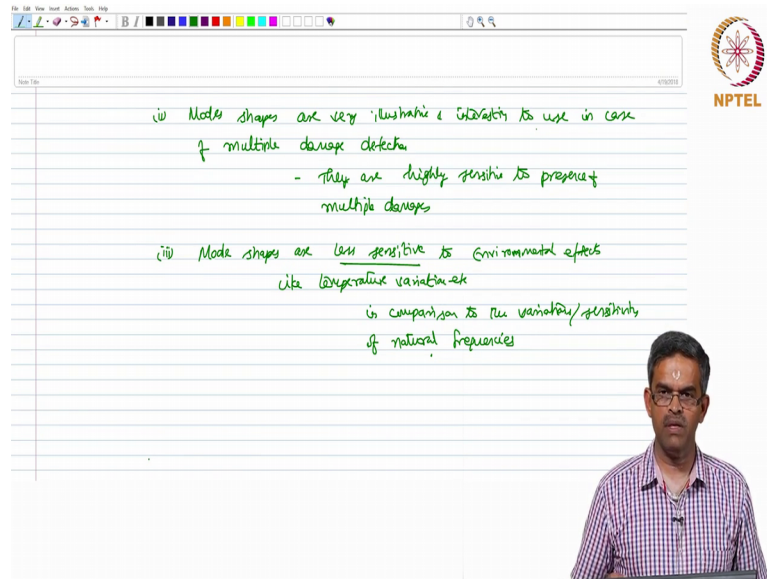 File Edit View Insert Actions Tools Help
B I
Note Title
4/19/2018
NPTEL
ii) Modes shapes are very illustrative & interesting to use in case
of multiple damage detection
- They are highly sensitive to presence of
multiple damages
(iii) Mode shapes are less sensitive to Environmental effects
like temperature variation etc
in comparison to the variations/sensitivity
of natural frequencies